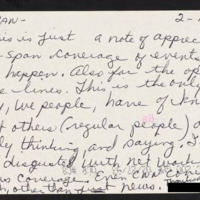 PAN- 2-
is is just a note of apprec
-span coverage of events
happen. Also for the op
e-lines. This is the only
, we people, have of kn
t others (regular people) a
ly thinking and saying. I
disgusted with net work
s coverage. Even CNN
other than news.